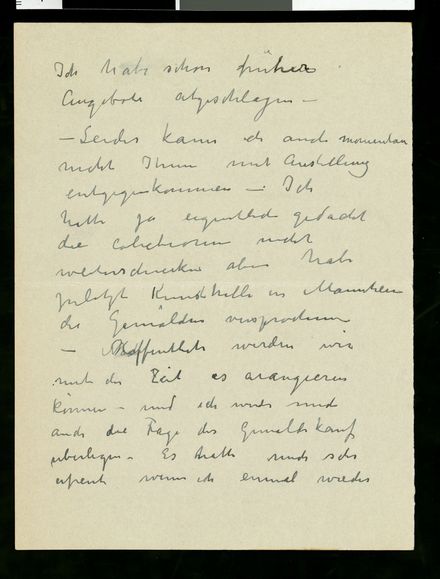 Ich habe schon früher
Angebote abgeschlagen –
– Leider kann ich auch momentan
nicht Ihnen mit Austellung
entgegenkommen – Ich
hatte ja eigentlich gedacht
die nicht
aber habe
Kunsthalle in Mannheim
die Gemälden versprochen
– Hoffentlich werden wir
mit der Zeit es arangieren
können – und ich werde mich
auch die Frage des Gemäldekauf
überlegen – Es hatte mich sehr
erfreut wenn ich einmal wieder